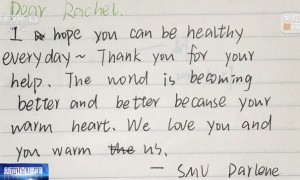 Dear Rachel.
I hope you can be healthy
everyday~ Thank you for your
help. The world is becoming
better and better because your
warm heart. We love you and
you warm the us.
— SMU Darlene
新闻直播间